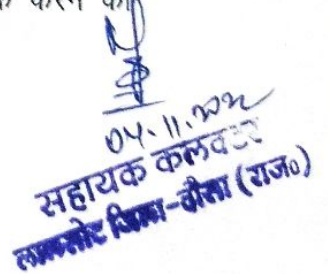 करने का
04.11.2022
सहायक कलेक्टर
लालसोट जिला-दौसा (राज०)